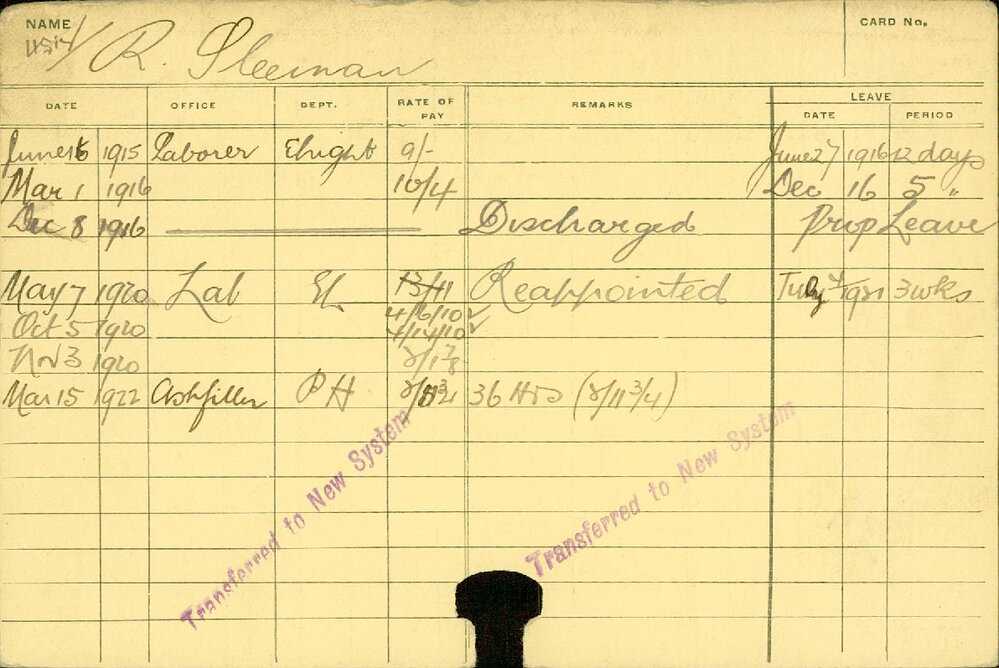 NAME
R. Sleeman
CARD No.
DATE OFFICE DEPT. RATE OF PAY REMARKS LEAVE
DATE PERIOD
June 1915 Laborer Elright 9/- June 27 1916 12 days
Mar 1 1916 10/4 Dec 16 5 "
Dec 8 1916 Discharged Prop Leave
May 7 1920 Lab El 13/11 Reappointed July 1921 3 wks
Oct 5 1920 4/6/10
4/14/10
Nov 3 1920 2/1 7/8
Mar 15 1922 Ashfiller PH 36 Hrs (2/11 3/4)
Transferred to New System
Transferred to New System